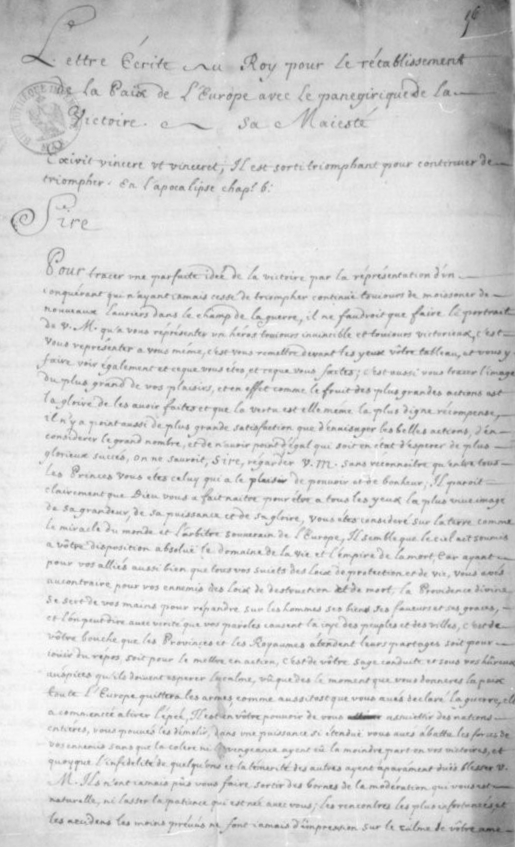 16
Lettre Ecrite au Roy pour le rétablissement
de la Paix de L'Europe avec le panegirique de la
Victoire de Sa Maiesté
Exivit vincere vt vinceret, Il est sorti triomphant pour continuer de
triompher. En l'apocalipse chapt. 6.
Sire
Pour tracer vne parfaite ideé de la victoire par la réprésentation d'vn
conquérant qui n'ayant iamais cessé de triompher continuë touiours de moissoner de
nouveaux lauriers dans le champ de la guerre, il ne faudroit que faire le portrait
de V. M. qu'a vous répresénter vn héros touiours inuincible et touiours victorieux, c'est
vous réprésenter a vous méme, c'est vous remettre devant les yeux vôtre tableau, et vous y
faire voir également et ce que vous étes et ce que vous faites; c'est aussi vous tracer l'image
du plus grand de vos plaisirs, et en effet comme le fruit des plus grandes actions est
la gloire de les auoir faites et que la vertu est elle méme la plus digne récompense,
il n'y a point aussi de plus grande satisfaction que d'enuisager les belles actions, d'en
considérer le grand nombre, et de n'auoir point d'égal qui soit en état d'esperer de plus
glorieux succés, on ne sauroit, Sire, régarder V. M. sans reconnoitre qu'entre tous
les Princes vous étes celuy qui a le plus de pouvoir et de bonheur; Il paroit
clairement que Dieu vous a fait naitre pour étre a tous les yeux la plus viue image
de sa grandeur, de sa puissance et de sa gloire, vous étes consideré sur la terre comme
le miracle du monde et l'arbitre souuerain de l'Europe, Il semble que le ciel ait soumis
a vôtre disposition absoluë le domaine de la vie et l'empire de la mort, Car ayant
pour vos alliés aussi bien que tous vos suiets des loix de protection et de vie, vous avés
au contraire pour vos ennemis des loix de destruction et de mort, la Providence divine
se sert de vos mains pour répandre sur les hommes ses biens ses faueurs et ses graces,
et l'on peut dire auec verité que vos paroles causent la ioye des peuples et des villes, c'est de
vôtre bouche que les Provinces et les Royaumes atendent leurs partages soit pour
iouir du repos, soit pour le mettre en action, c'est de vôtre sage conduite et sous vos hûreux
auspices qu'ils doivent esperer le calme, vû que des le moment que vous donnerés la paix
toute l'Europe quittera les armes comme aussitost que vous aués declaré la guerre, elle
a commencé a tirer l'épeé, Il est en vôtre pouuoir de vous assuiettir des nations
entiéres, vous pouués les démolir, dans vne puissance si étendue vous aués abattu les forces de
vos ennemis sans que la colere ni vengeance ayent eû la moindre part en vos victoires, et
quoy que l'infidelité de quelqu'ons et la témérité des autres ayent aparament duës blesser V.
M. Ils n'ont iamais pûs vous faire sortir des bornes de la modération qui vous est
naturelle, ni lasser la patience qui est née auec vous; les rencontres les plus infortuneés et
les accidens les moins préuûs ne font iamais d'impression sur le calme de vôtre ame